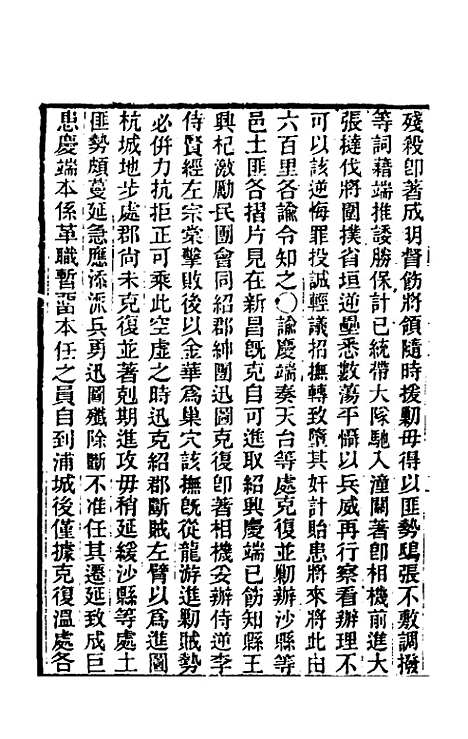 殘殺卽著成明督飭將領隨時援勦毋得以匪勢鴟張不敷調撥
等詞藉端推諉勝保計已統帶大隊馳入潼關著卽相機前進大
張撻伐將圍撲省垣逆壘悉數蕩平懾以兵威再行察看辦理不
可以該逆悔罪投誠輕議招撫轉致墮其奸計貽患將來將此由
六百里各諭令知之○諭慶端奏天台等處克復並勦辦沙縣等
邑土匪各摺片見在新昌旣克自可進取紹興慶端已飭知縣王
興杞激勵民團會同紹郡紳團迅圖克復卽著相機妥辦侍逆李
侍賢經左宗棠擊敗後以金華爲巢穴該撫旣從龍游進勦賊勢
必併力抗拒正可乘此空虛之時迅克紹郡斷賊左臂以爲進圖
杭城地步處郡尙未克復並著剋期進攻毋稍延緩沙縣等處土
匪勢頗蔓延急應添派兵勇迅圖殲除斷不准任其遷延致成巨
患慶端本係革職暫留本任之員自到浦城後僅據克復溫處各